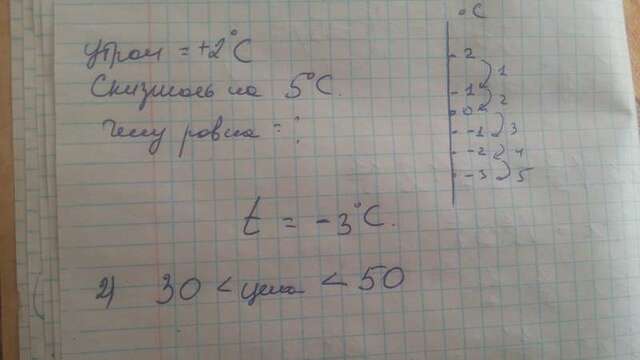 Утром = +2°C
Снизилась на 5°C.
Чему равна = ?
°C
2
1
1
2
0
-1
3
-2
4
-3
5
t = -3°C.
2) 30 < цена < 50